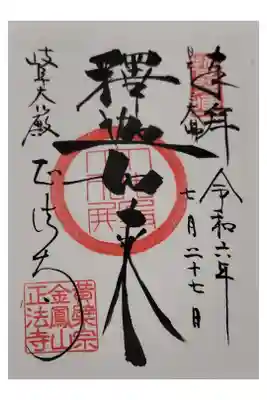 奉拝
令和六年
七月二十七日
釋迦如来
岐阜大
正法寺
黄檗宗
金鳳山
正法寺